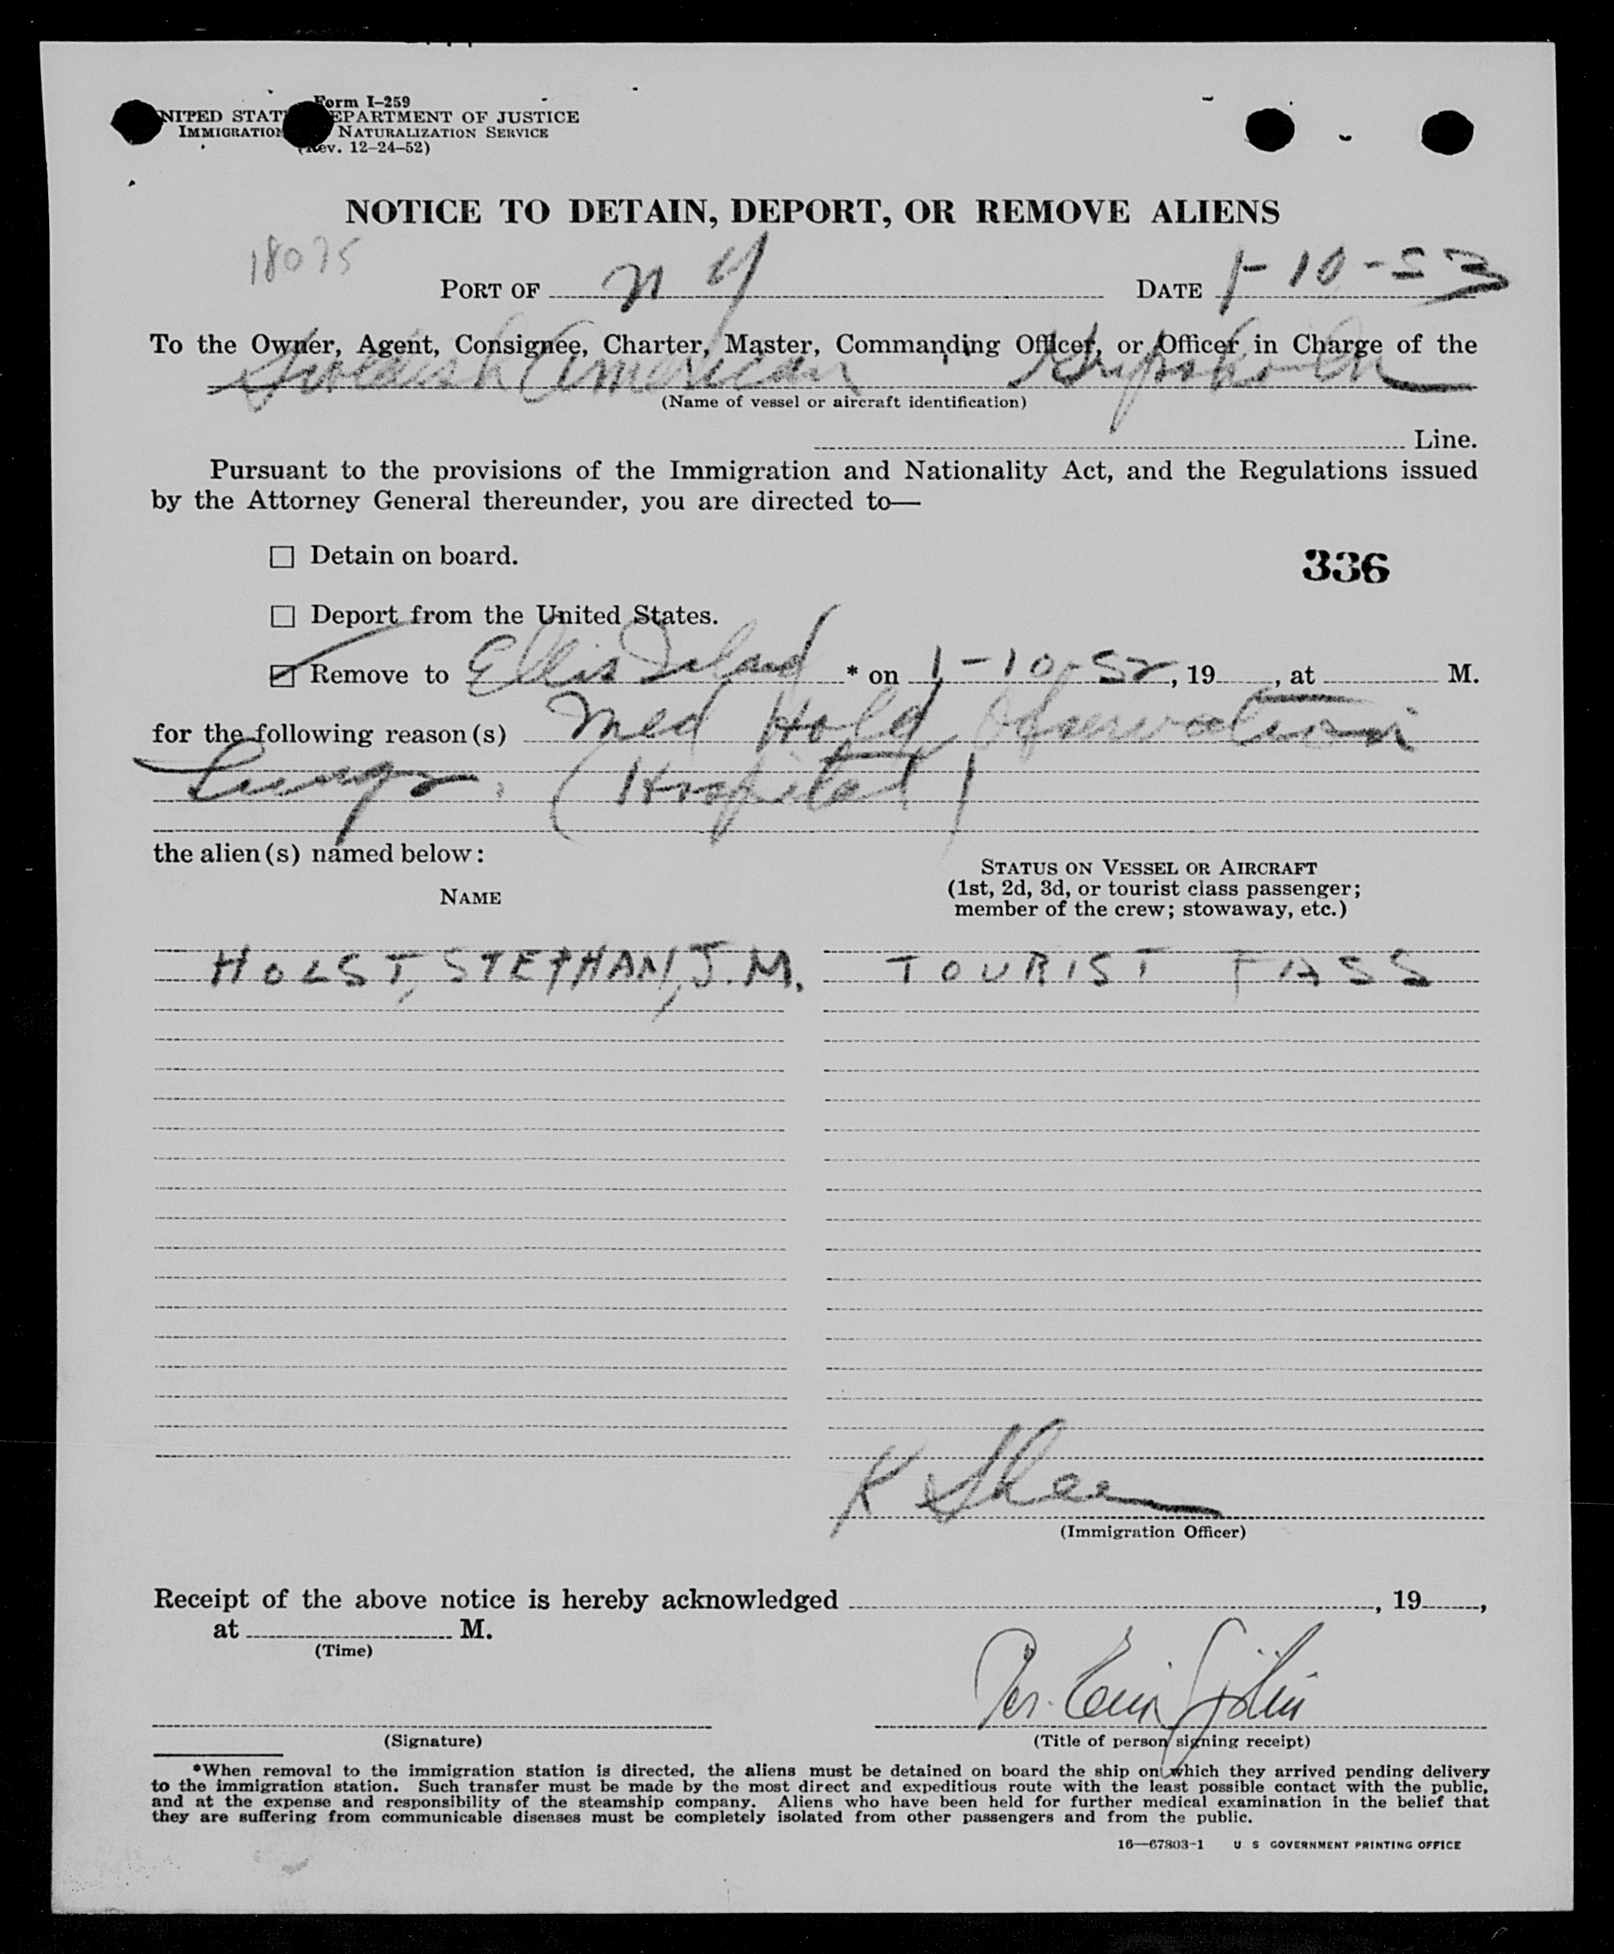 Form I-259
NITED STAT EPARTMENT OF JUSTICE
IMMIGRATION NATURALIZATION SERVICE
(Rev. 12-24-52)
NOTICE TO DETAIN, DEPORT, OR REMOVE ALIENS
18075
PORT OF N Y DATE 1-10-53
To the Owner, Agent, Consignee, Charter, Master, Commanding Officer, or Officer in Charge of the
Swedish American Gripsholm
(Name of vessel or aircraft identification)
Line.
Pursuant to the provisions of the Immigration and Nationality Act, and the Regulations issued
by the Attorney General thereunder, you are directed to—
Detain on board.
336
Deport from the United States.
Remove to Ellis Island * on 1-10-52, 19 , at M.
for the following reason(s) Med Hold Observation
Lungs. (Hospital)
the alien(s) named below:
NAME
STATUS ON VESSEL OR AIRCRAFT
(1st, 2d, 3d, or tourist class passenger;
member of the crew; stowaway, etc.)
HOLST, STEPHAN, J. M. TOURIST PASS
K Shea
(Immigration Officer)
Receipt of the above notice is hereby acknowledged , 19 ,
at M.
(Time)
Per.
(Signature)
(Title of person signing receipt)
*When removal to the immigration station is directed, the aliens must be detained on board the ship on which they arrived pending delivery
to the immigration station. Such transfer must be made by the most direct and expeditious route with the least possible contact with the public,
and at the expense and responsibility of the steamship company. Aliens who have been held for further medical examination in the belief that
they are suffering from communicable diseases must be completely isolated from other passengers and from the public.
16—67803-1 U S GOVERNMENT PRINTING OFFICE